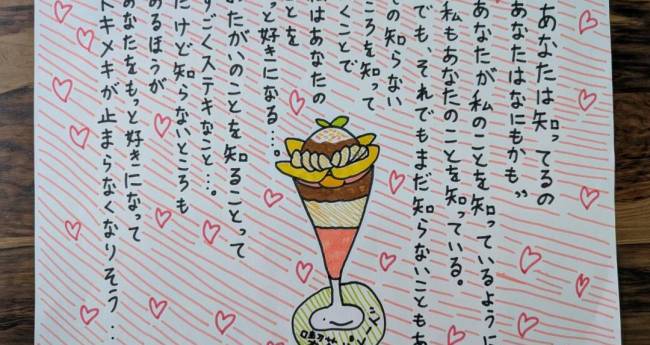 あなたは知ってるの
あなたはなにもかも〟
あなたが私のことを知っているように
私もあなたのことを知っている。
でも、それでもまだ知らないこともあ
の知らない
ころを知って
くことで
はあなたの
ことを
っと好きになる…。
たがいのことを知ることって
すごくステキなこと…。
だけど知らないところも
あるほうが
あなたをもっと好きになって
トキメキが止まらなくなりそう…